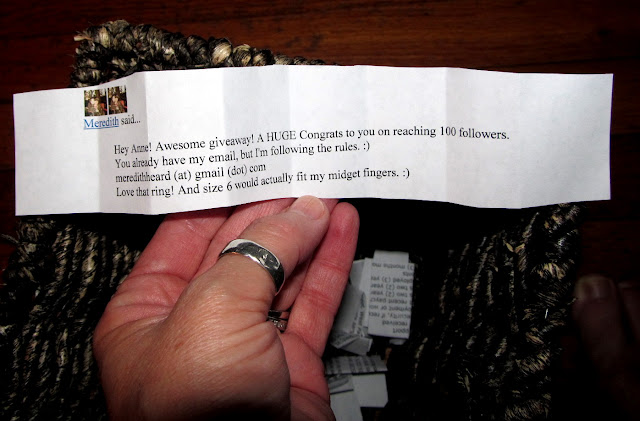 Meredith said...
Hey Anne! Awesome giveaway! A HUGE Congrats to you on reaching 100 followers.
You already have my email, but I'm following the rules. :)
meredithheard (at) gmail (dot) com
Love that ring! And size 6 would actually fit my midget fingers. :)